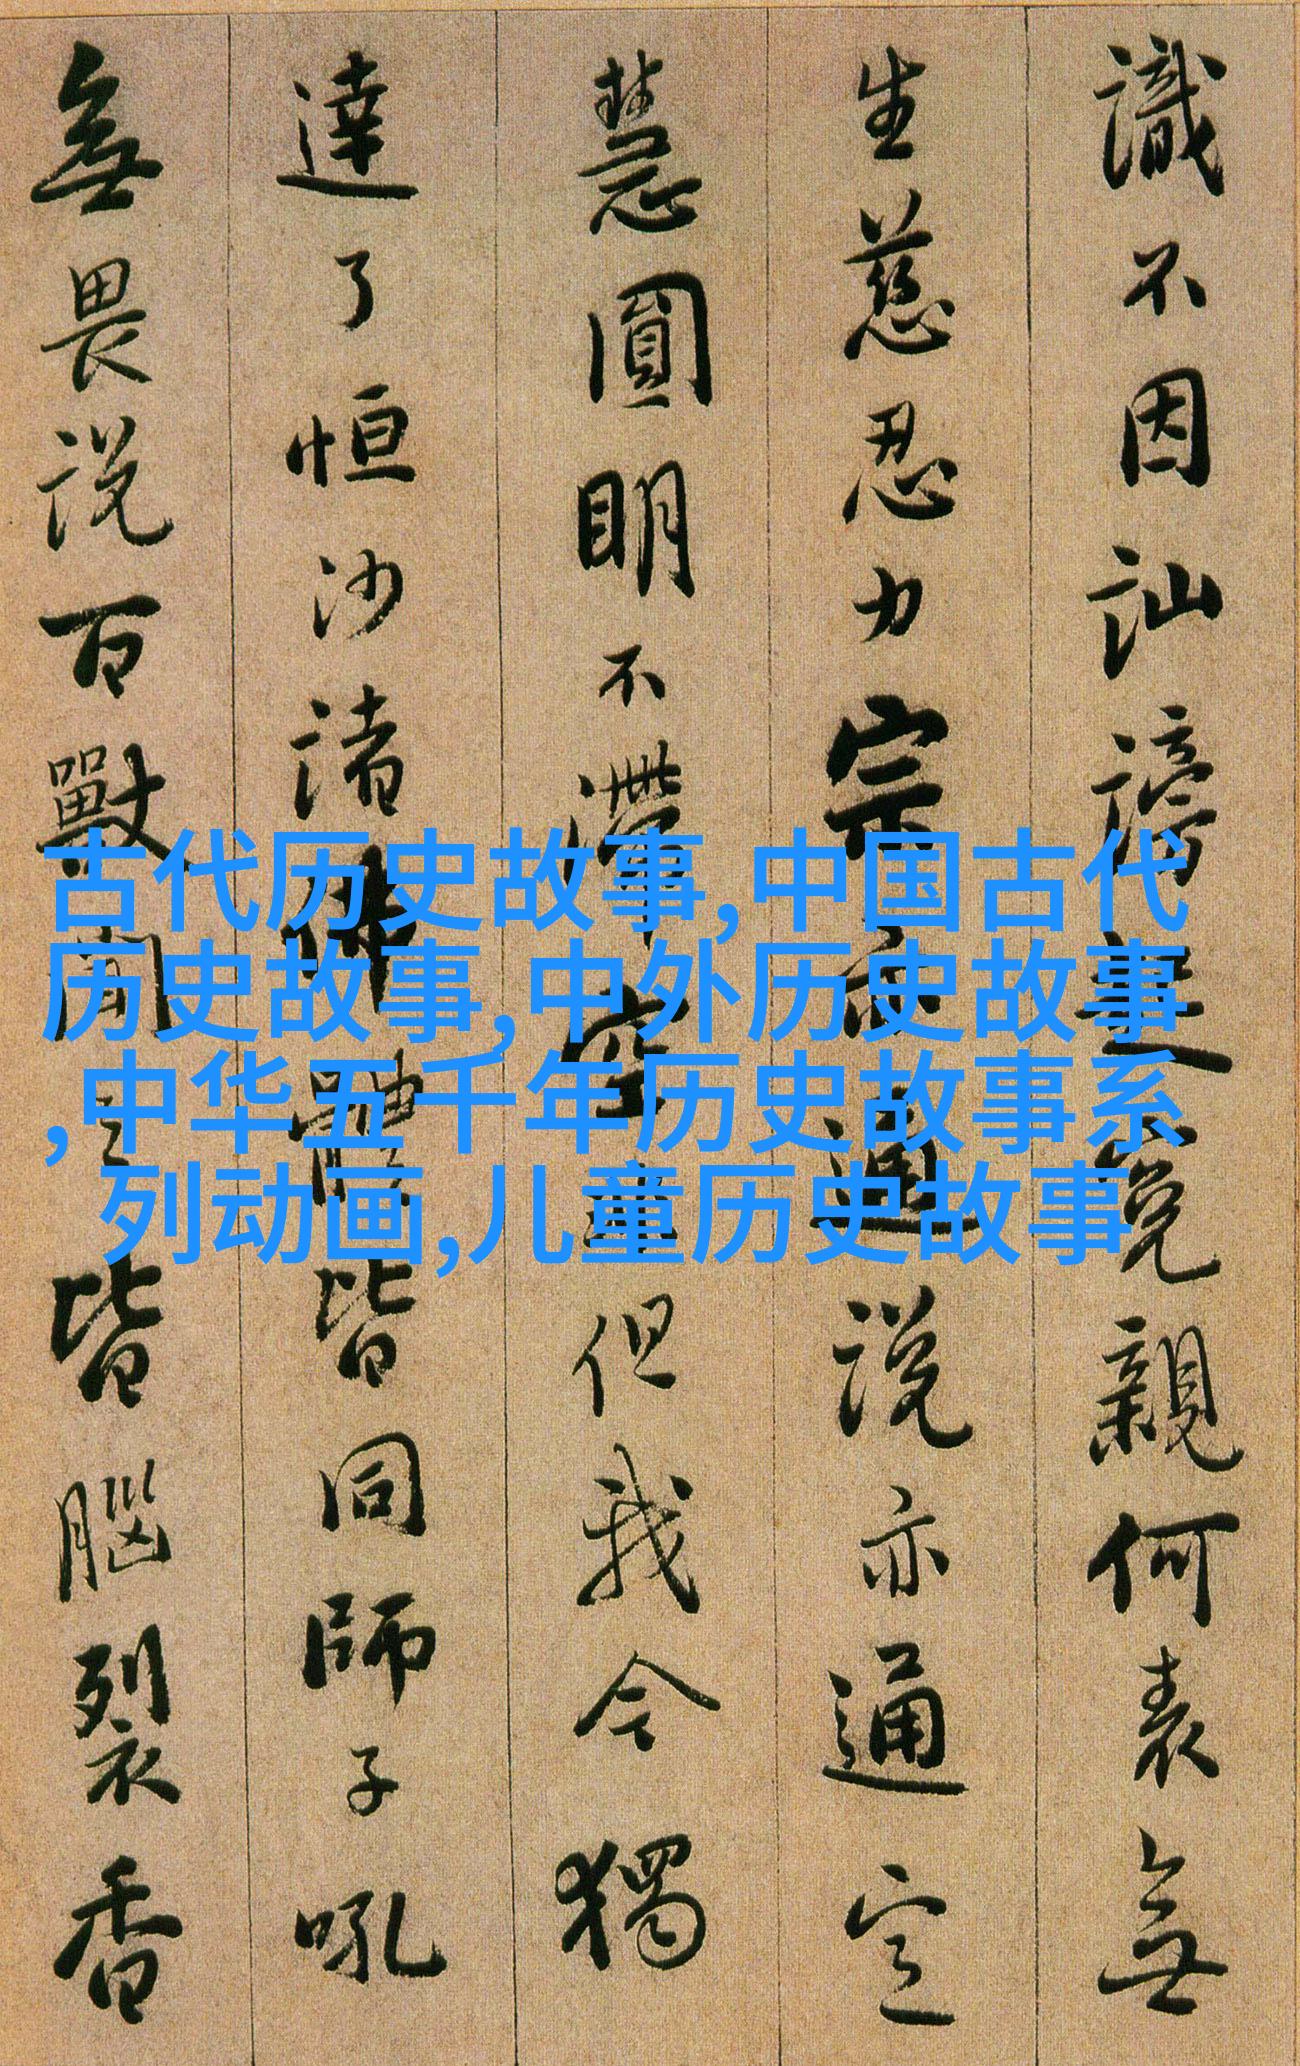 識不因訕謗起冤親何表無
生慈忍力宗亦通説亦通定
慧圓明不滯空非但我今獨
達了恒沙諸佛體皆同師子吼
無畏説百獸聞之皆腦裂香
古代历史故事,中国古代
历史故事,中外历史故事
,中华五千年历史故事系
列动画,儿童历史故事